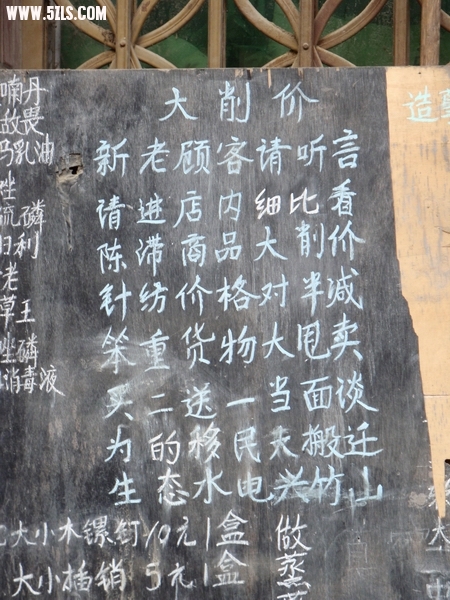 WWW.5ZLS.COM
大削价
新老顾客请听言
请进店内细比看
陈滞商品大削价
针纺价格对半减
笨重货物大甩卖
买二送一当面谈
为的移民夫搬迁
生态水电兴竹山
大小木镙钉10元1盒
大小插销5元1盒
喃丹
敌畏
马乳油
硫磷
归利
老
草王
唑磷
消毒液
做
蒸
造